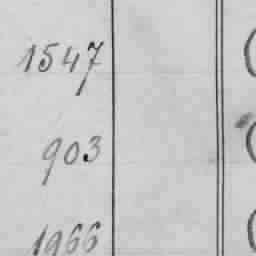 1547
903
1966